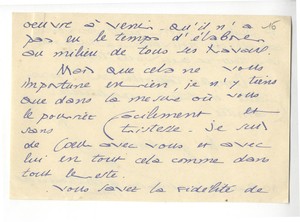 oeuvre à venir. qu'il n'a
pas eu le temps d'élaborer
au milieu de tous ses travaux.
Mais que cela ne vous
importune en rien, je n'y tiens
que dans la mesure où vous
le pourriez facilement et
sans tristesse. Je suis
de Cœur avec vous et avec
lui en tout cela comme dans
tout le reste.
Vous savez la fidélité de